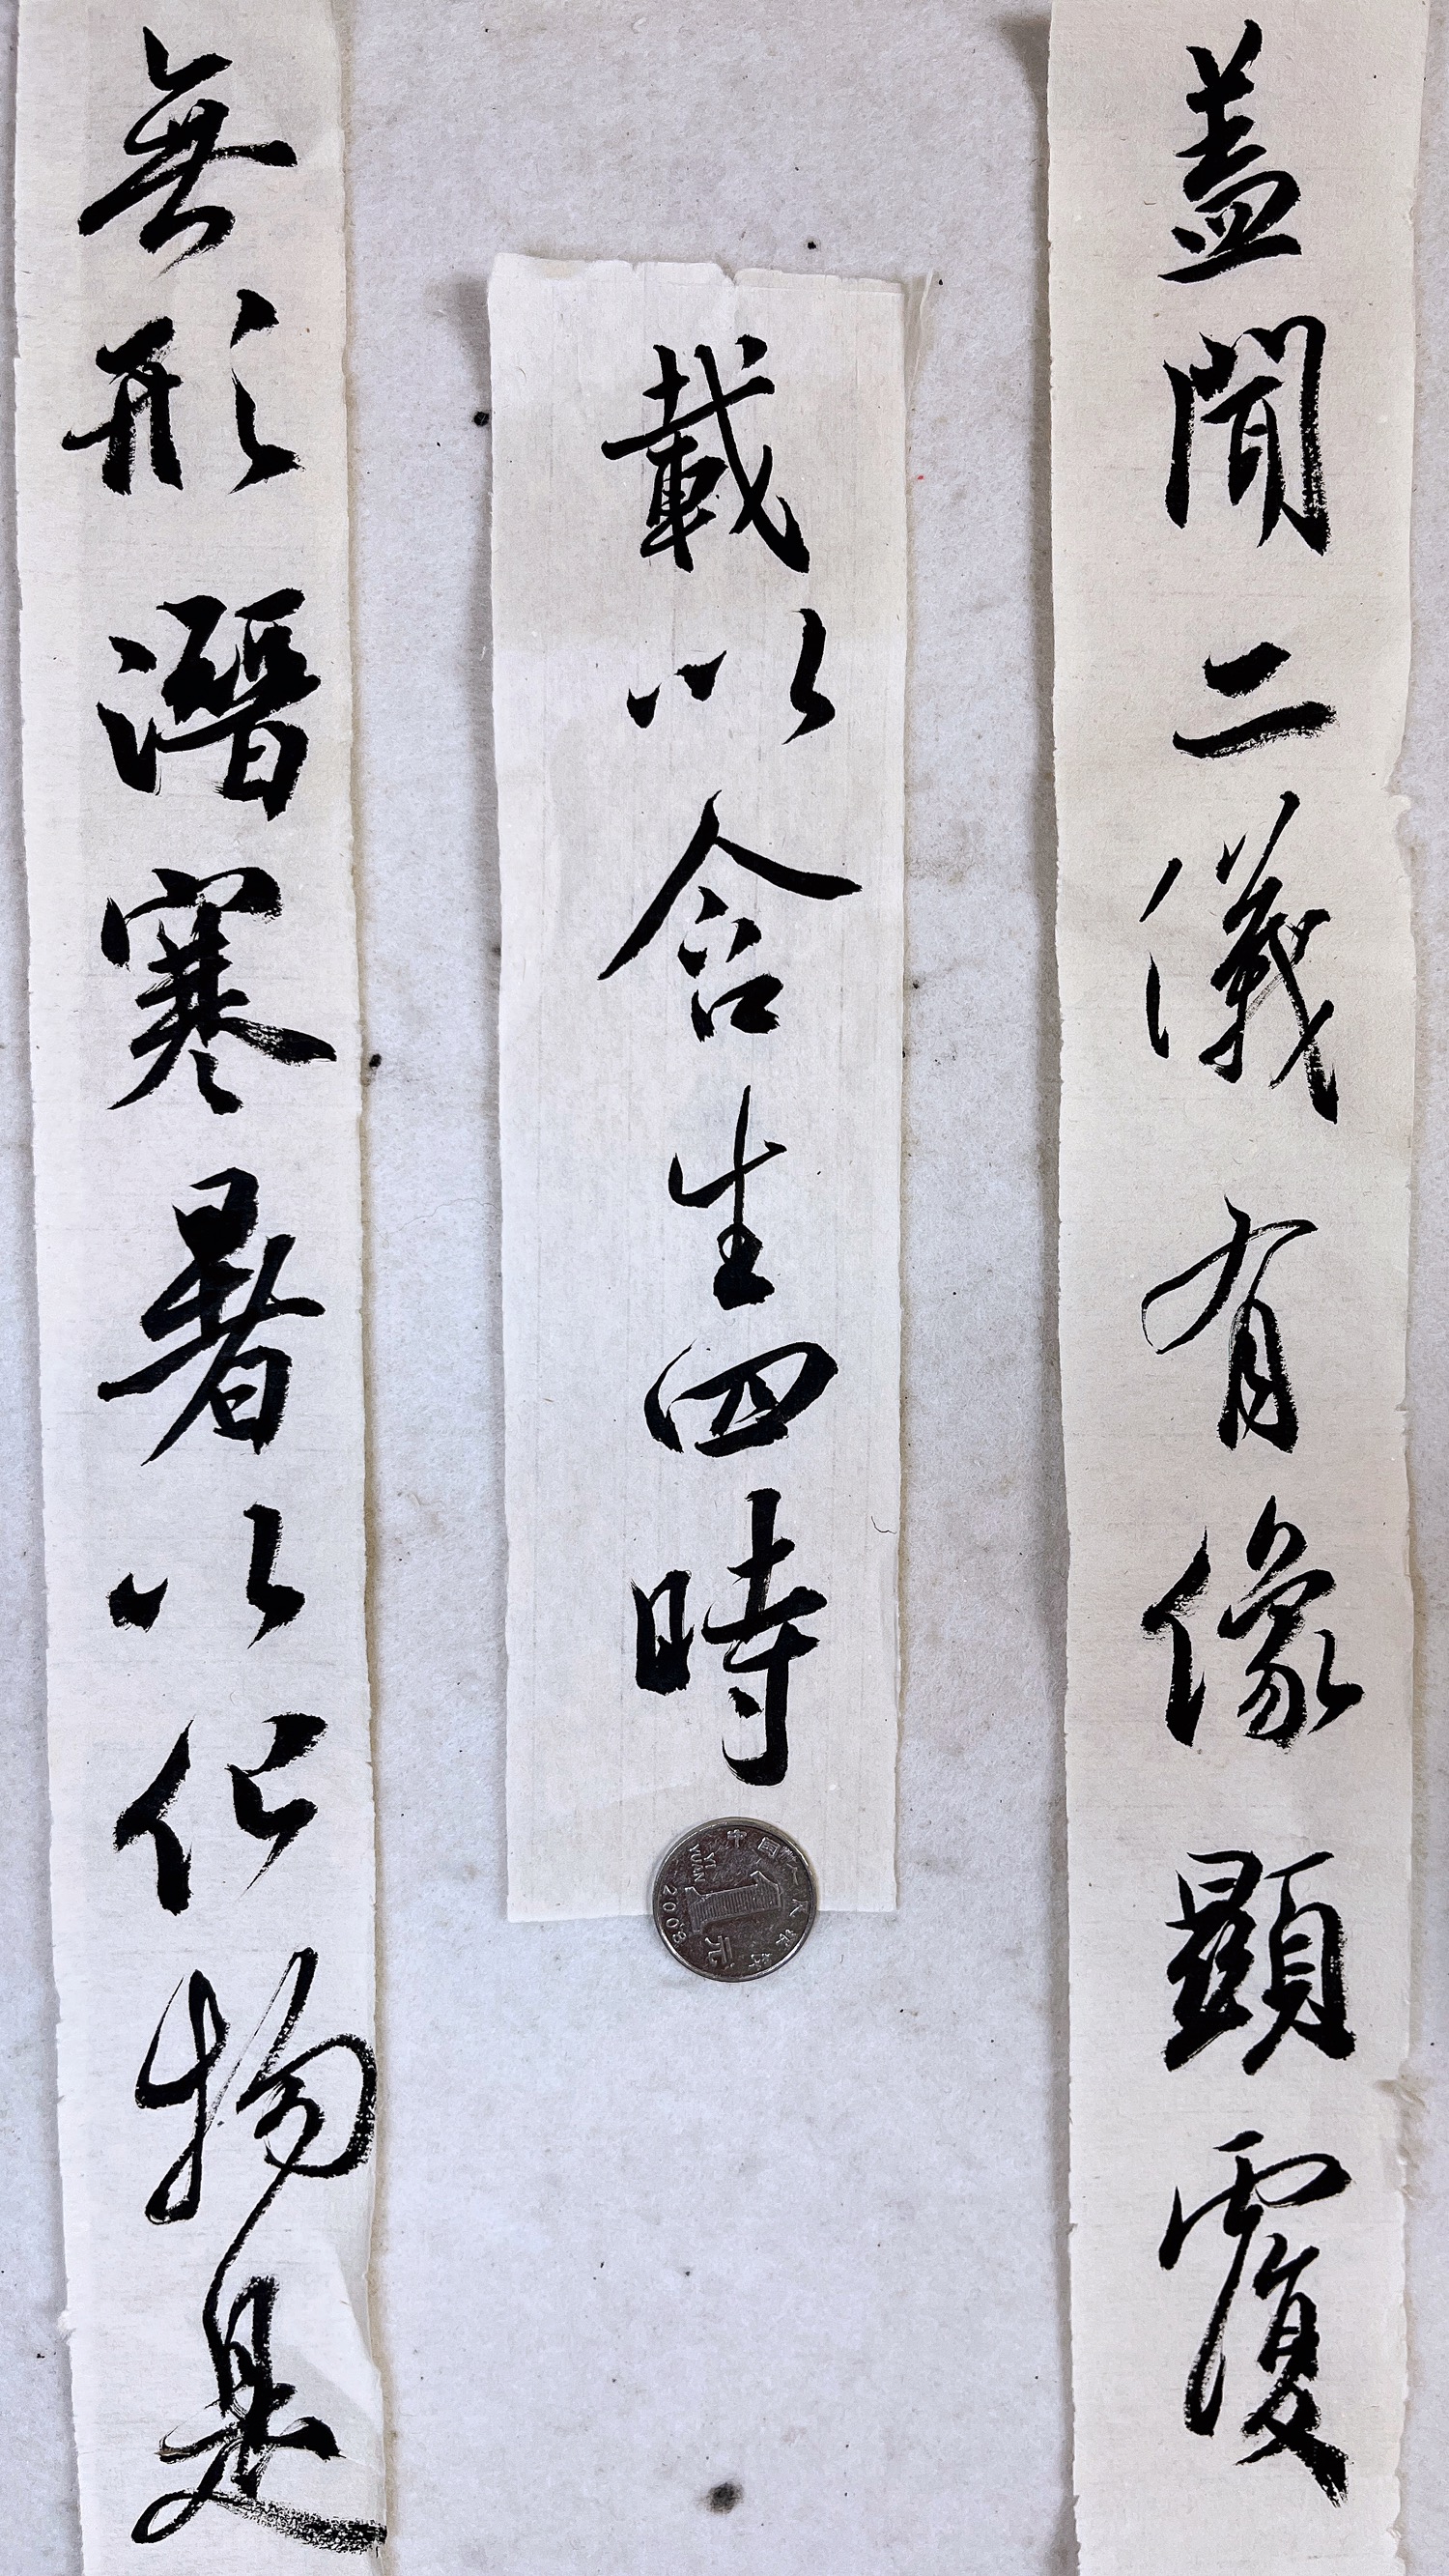 蓋聞二儀有像顯覆
載以含生四時
無形潛寒暑以化物是
中国人民银行
YI YUAN
1元
2008